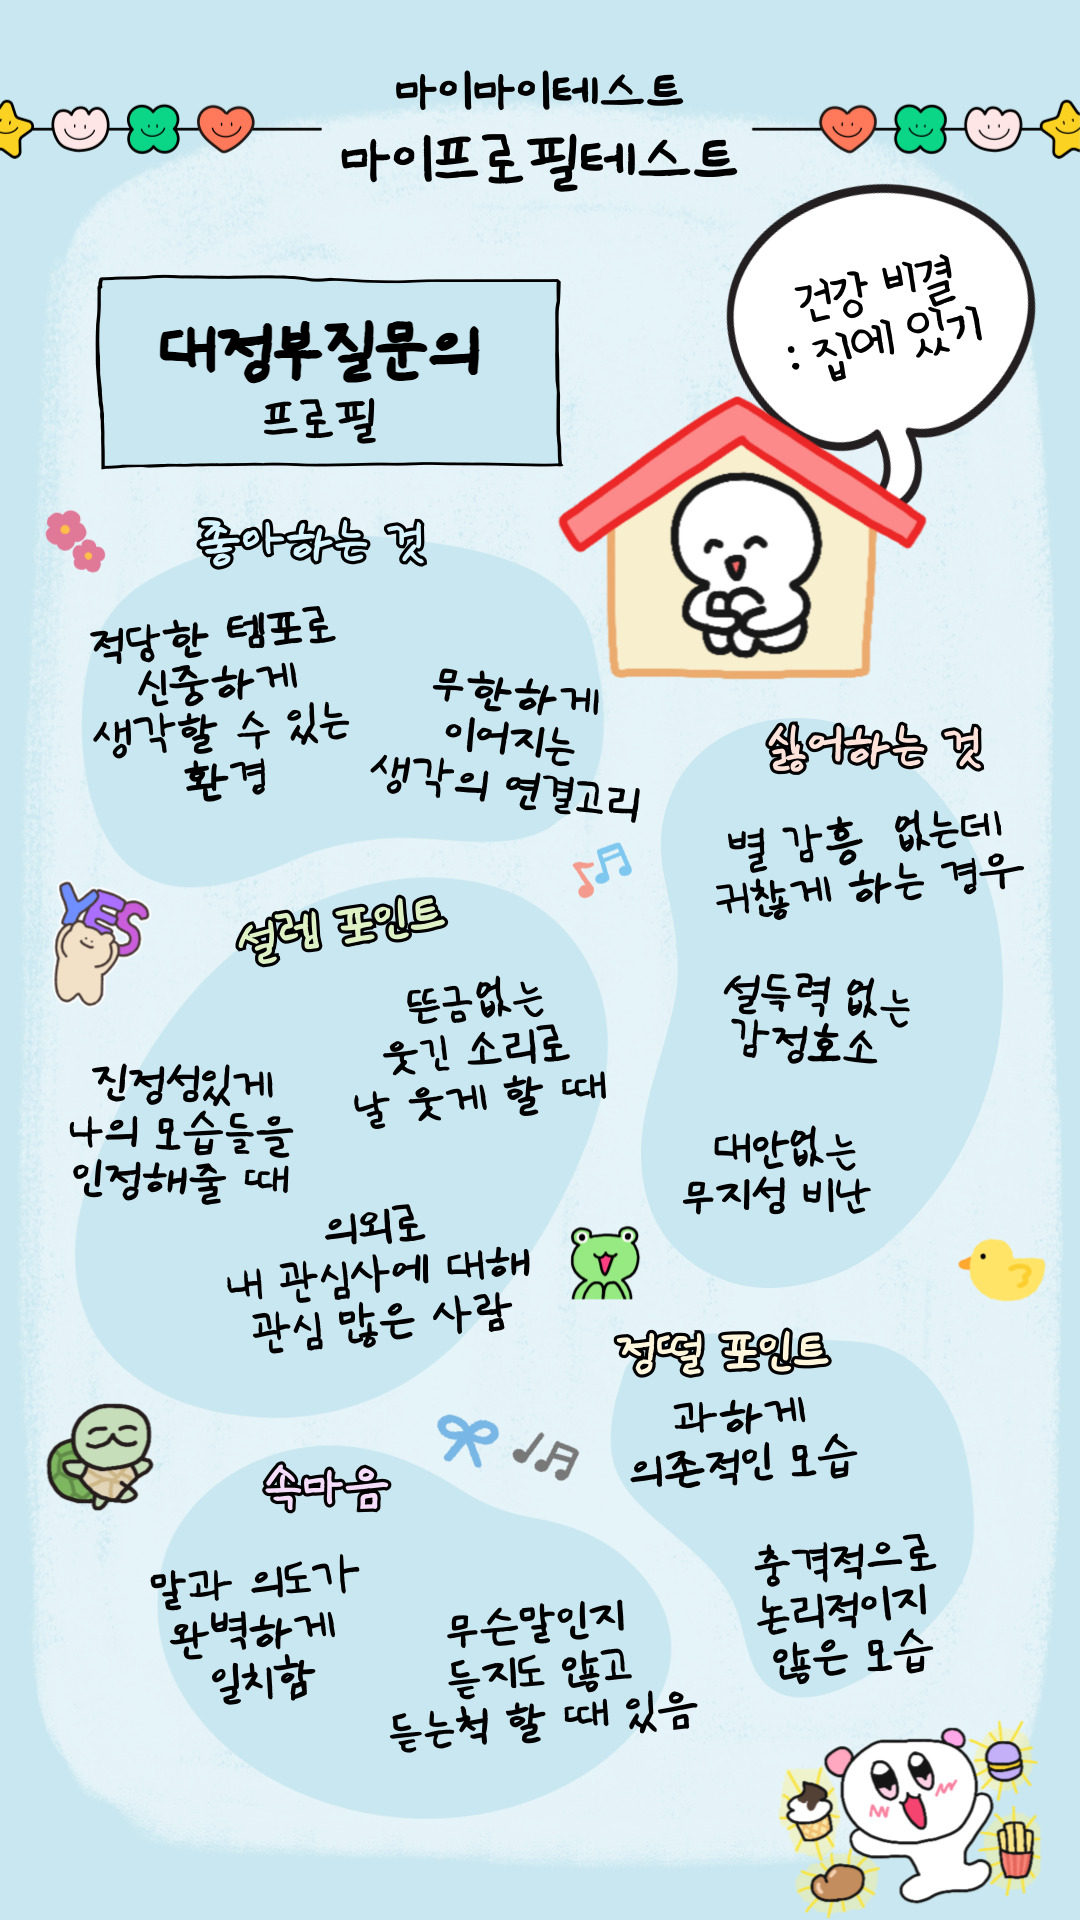 마이마이테스트
마이프로필테스트
건강 비결
: 집에 있기
대정부질문의
프로필
좋아하는 것
적당한 템포로
신중하게
생각할 수 있는
환경
무한하게
이어지는
생각의 연결고리
싫어하는 것
별 감흥 없는데
귀찮게 하는 경우
설득력 없는
감정호소
대안없는
무지성 비난
YES
설렘 포인트
뜬금없는
웃긴 소리로
날 웃게 할 때
진정성있게
나의 모습들을
인정해줄 때
의외로
내 관심사에 대해
관심 많은 사람
정떨 포인트
과하게
의존적인 모습
충격적으로
논리적이지
않은 모습
속마음
말과 의도가
완벽하게
일치함
무슨말인지
듣지도 않고
듣는척 할 때 있음